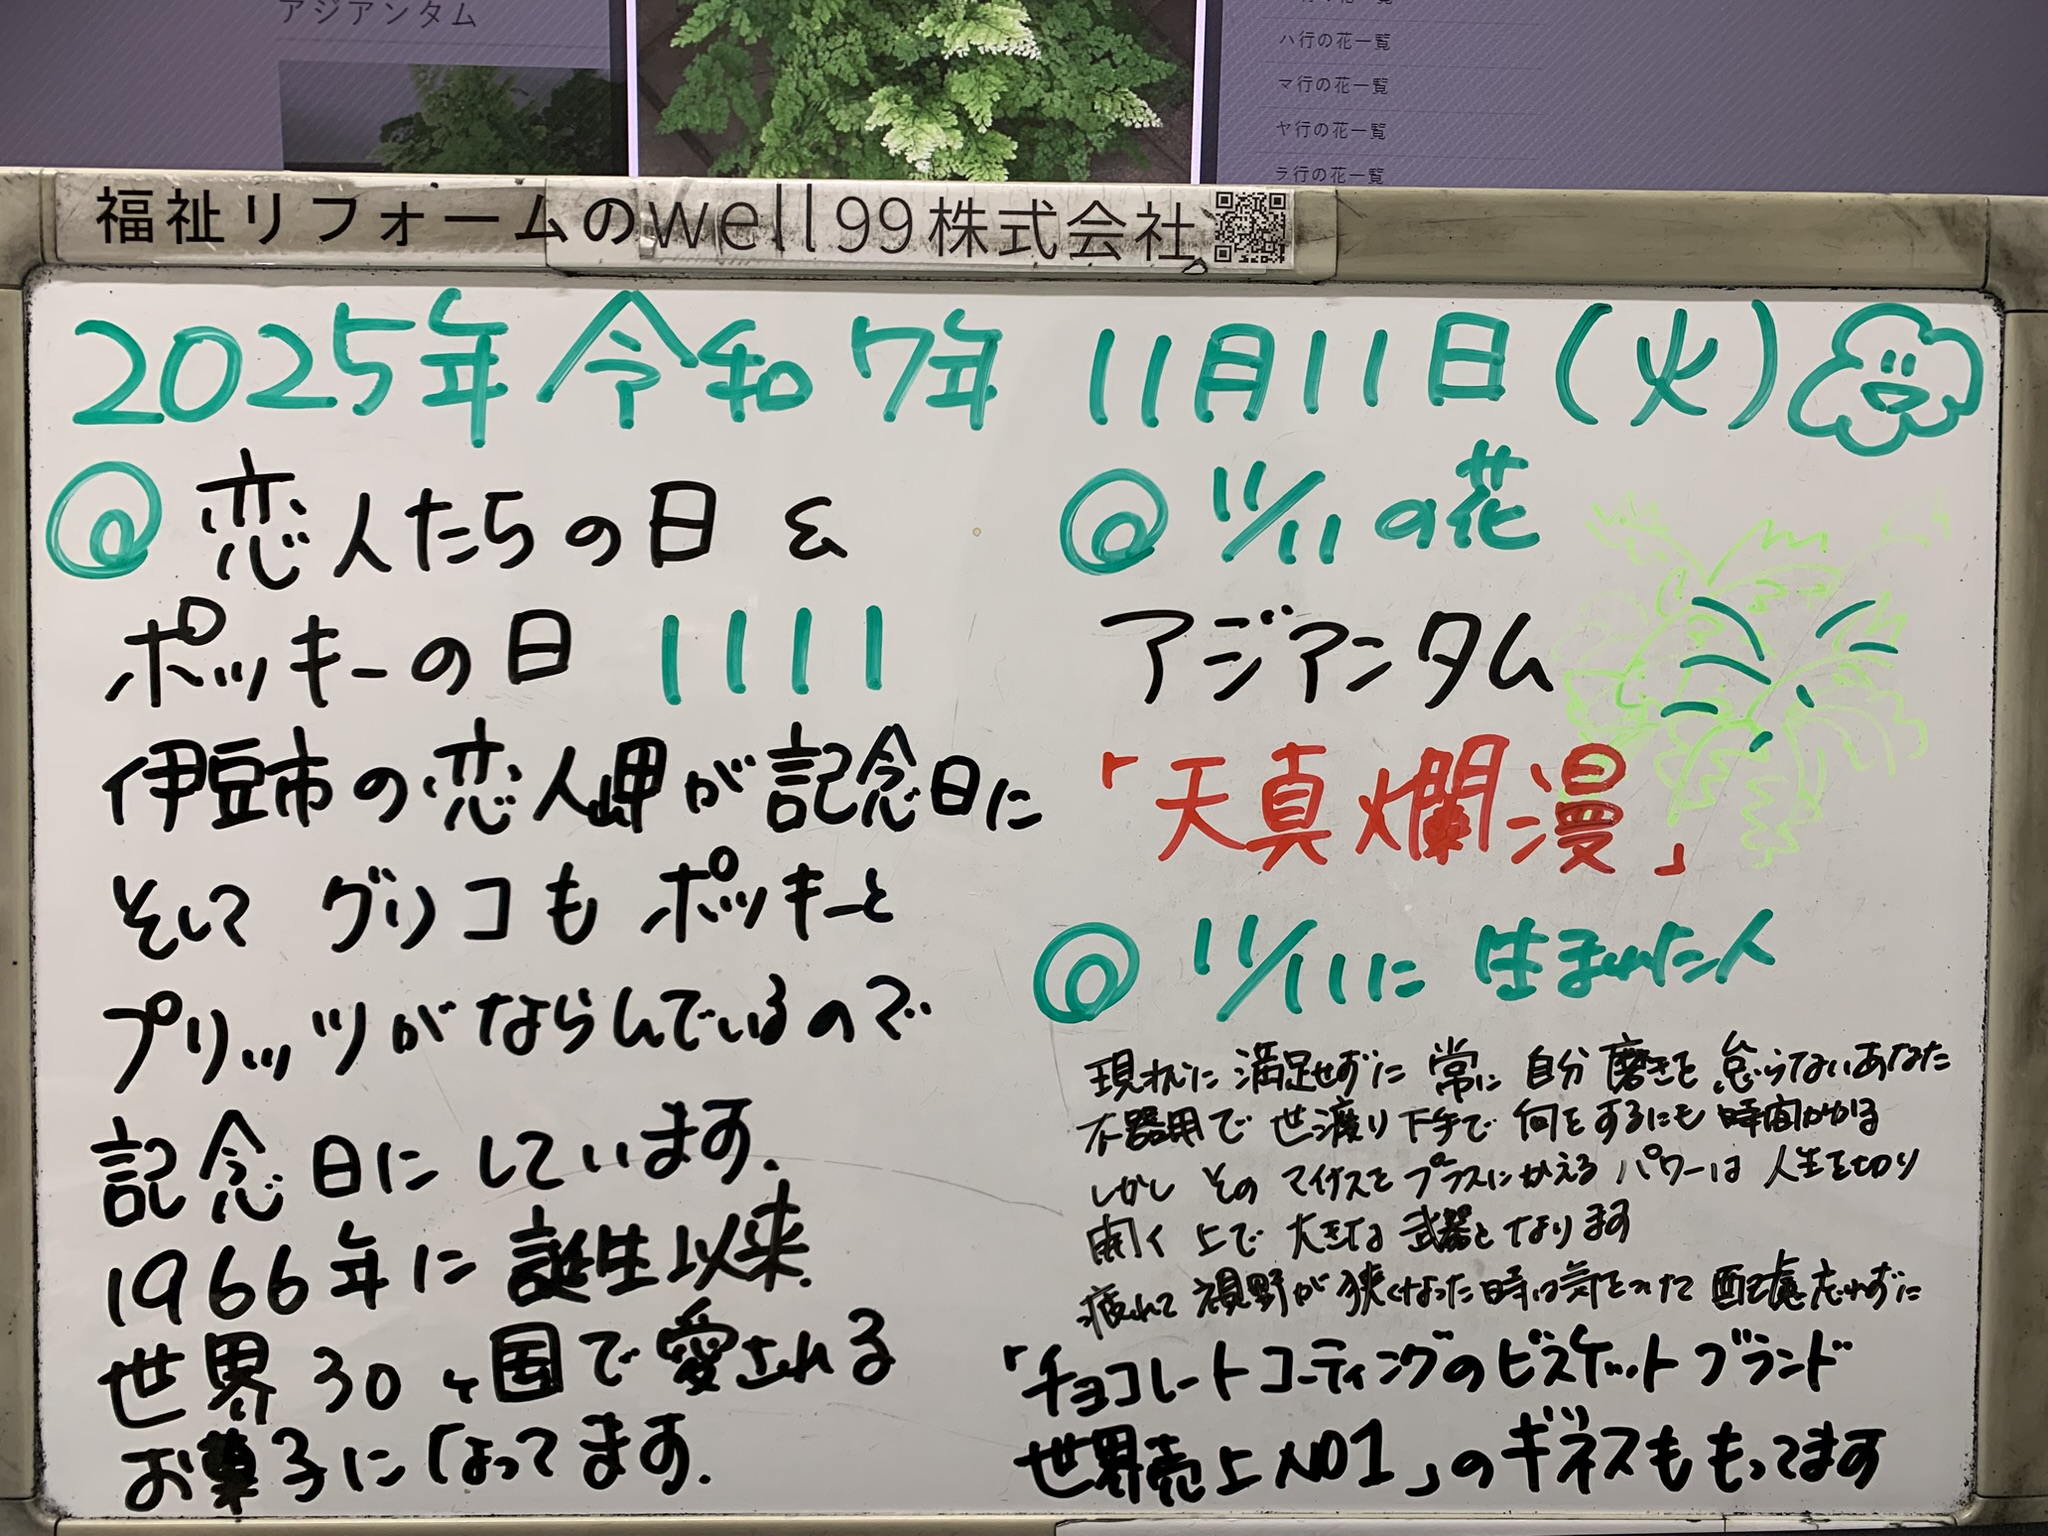 アジアンタム
ハ行の花一覧
マ行の花一覧
ヤ行の花一覧
ラ行の花一覧
福祉リフォームのwell99株式会社
2025年令和7年 11月11日(火)
◎ 恋人たちの日 &
ポッキーの日 1111
伊豆市の恋人岬が記念日に
そして グリコも ポッキーと
プリッツがならんでいるので
記念日に しています.
1966年に誕生以来.
世界30ヶ国で愛される
お菓子になってます.
◎ 11/11の花
アジアンタム
「天真爛漫」
◎ 11/11に 生まれた人
現れに 満足せずに 常に 自分 磨きを 怠らないあなた
不器用で 世渡り下手で 何をするにも 時間がかかる
しかし その マイナスを プラスにかえる パワーは 人生を切り
開く 上で 大きな 武器と なります
疲れて 視野が 狭くなった時は気をつけて 配慮忘れずに
「チョコレートコーティングのビスケットブランド
世界売上NO1」の ギネスも もってます